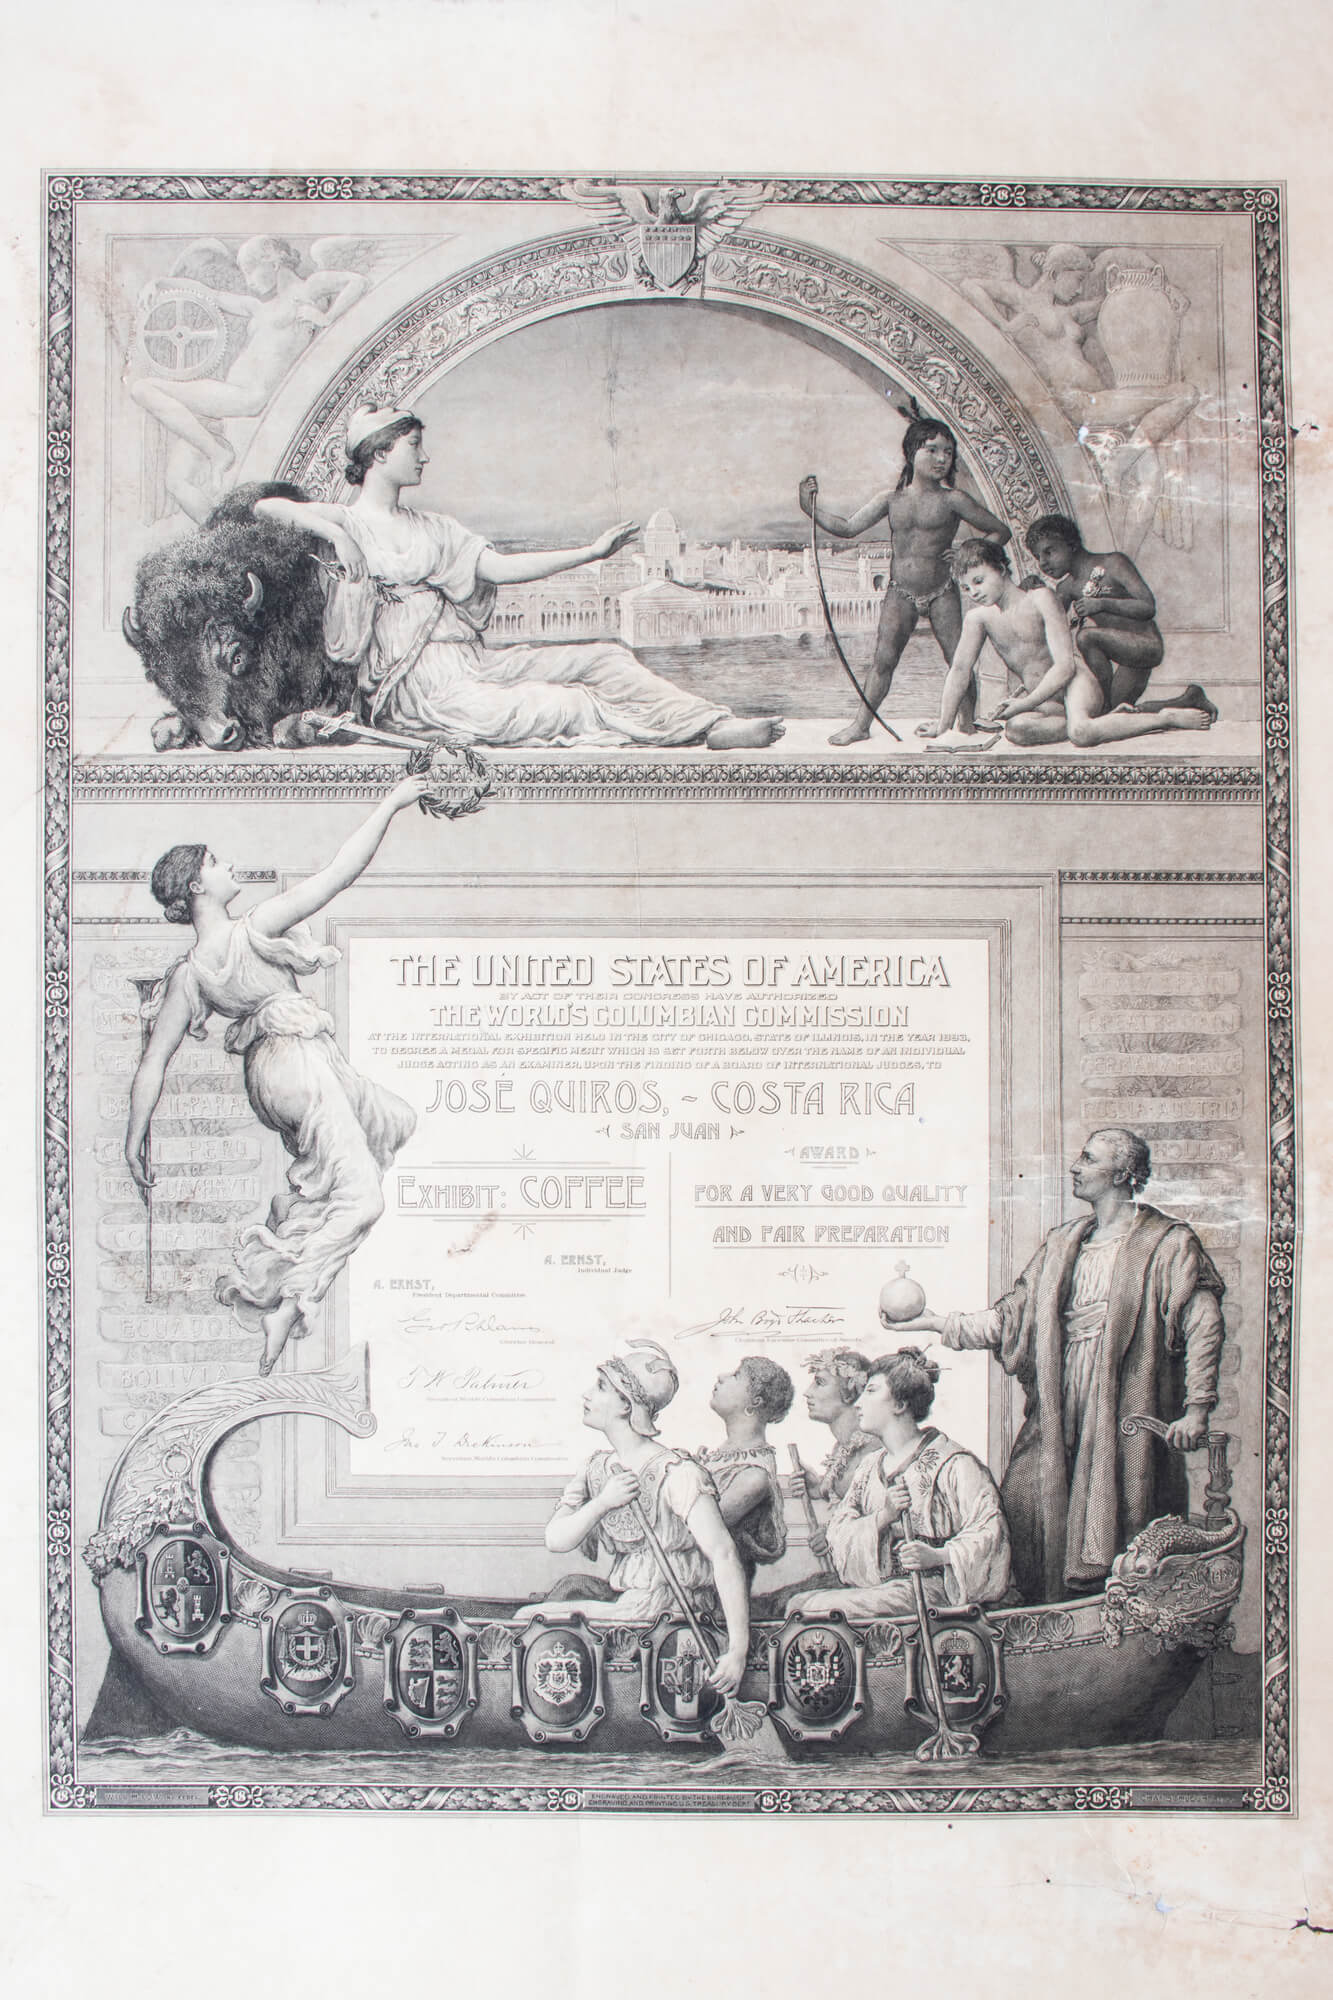 THE UNITED STATES OF AMERICA
BY ACT OF THEIR CONGRESS HAVE AUTHORIZED
THE WORLD'S COLUMBIAN COMMISSION
AT THE INTERNATIONAL EXHIBITION HELD IN THE CITY OF CHICAGO, STATE OF ILLINOIS, IN THE YEAR 1893,
TO DECREE A MEDAL FOR SPECIFIC MERIT WHICH IS SET FORTH BELOW OVER THE NAME OF AN INDIVIDUAL
JUDGE ACTING AS AN EXAMINER, UPON THE FINDING OF A BOARD OF INTERNATIONAL JUDGES, TO
JOSÉ QUIROS, ~ COSTA RICA
SAN JUAN
EXHIBIT: COFFEE
A. ERNST,
Individual Judge
A. ERNST,
President Departmental Committee
Director General
T W Palmer
President, World's Columbian Commission
Jno T. Dickinson
Secretary, World's Columbian Commission
AWARD
FOR A VERY GOOD QUALITY
AND FAIR PREPARATION
John Boyd Thacher
Chairman Executive Committee of Awards
COSTA RICA
ECUADOR
BOLIVIA
GREAT BRITAIN
GERMANY FRANCE
RUSSIA AUSTRIA
HOLLAND
ENGRAVED AND PRINTED BY THE BUREAU OF
ENGRAVING AND PRINTING U.S. TREASURY DEPT